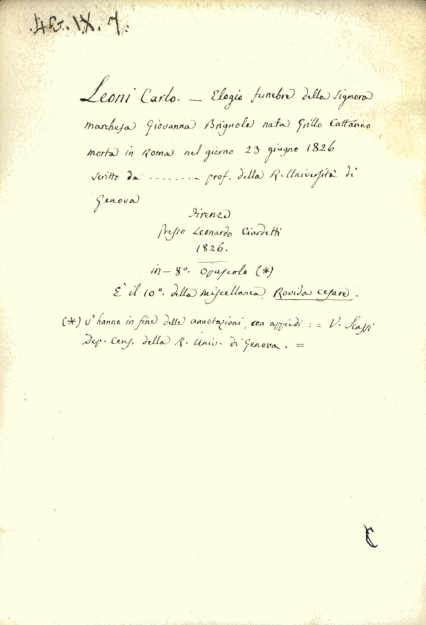 46. IX. 7.
Leoni Carlo. — Elogio funebre della signora
marchesa Giovanna Brignole nata Grillo Cattaneo
morta in Roma nel giorno 23 giugno 1826
scritto da -------- prof. della R. Università di
Genova
Firenze
presso Leonardo Ciardetti
1826.
in-8°. opuscolo (*)
È il 10°. della miscellanea Rovida Cesare.
(*) V'hanno in fine delle annotazioni, con appiedi: = V. Scassi
Dep. Cens. della R. Univ. di Genova. =